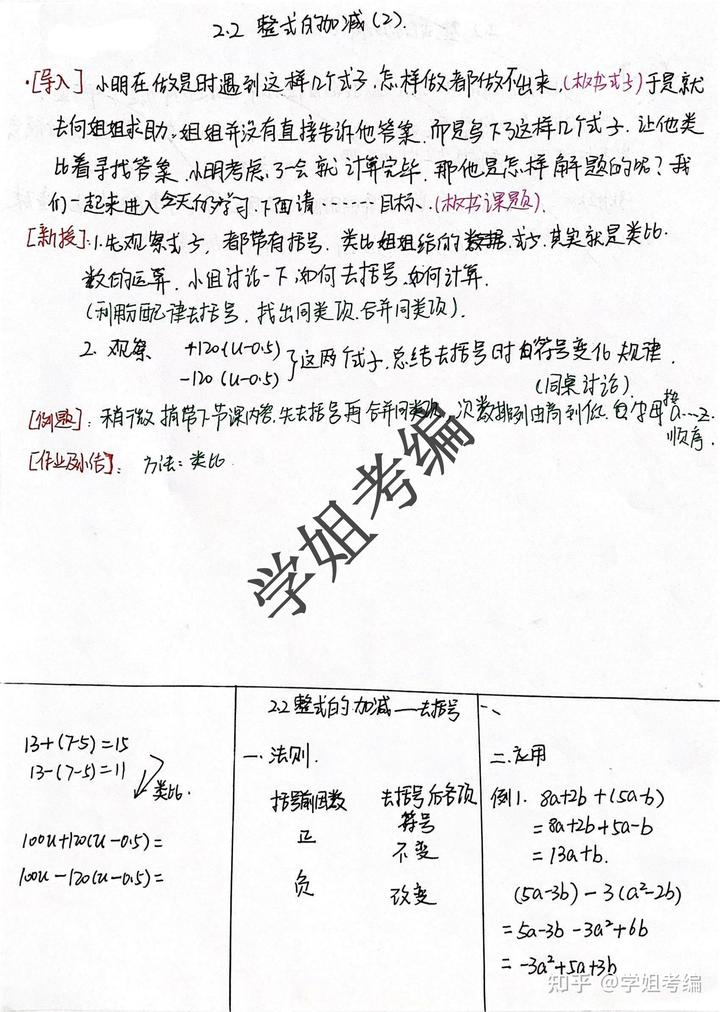 2.2 整式的加减(2).
·[导入] 小明在做是时遇到这样几个式子,怎样做都做不出来,(板书式子)于是就
去向姐姐求助,姐姐并没有直接告诉他答案,而是写下了这样几个式子,让他类
比着寻找答案,小明考虑了一会就计算完毕,那他是怎样解题的呢?我
们一起来进入今天的学习,下面请······目标.(板书课题).
[新授]:1.先观察式子,都带有括号,类比姐姐给的式子,其实就是类比
数的运算,小组讨论一下,如何去括号,如何计算.
(利用分配律去括号,找出同类项,合并同类项).
2. 观察 +120(u-0.5)
-120(u-0.5)
}这两个式子,总结去括号时的符号变化规律.
(同桌讨论).
[例题]:稍微捎带下节课内容,先去括号再合并同类项,次数排列由高到低,字母按a…z
顺序.
[作业及小结]:方法:类比
学姐考编
13+(7-5)=15
13-(7-5)=11
类比.
100u+120(u-0.5)=
100u-120(u-0.5)=
2.2整式的加减——去括号
一、法则.
括号前因数 去括号后各项
符号
正 不变
负 改变
二、应用
例1. 8a+2b+(5a-b)
=8a+2b+5a-b
=13a+b.
(5a-3b)-3(a²-2b)
=5a-3b-3a²+6b
=-3a²+5a+3b
知乎 @学姐考编